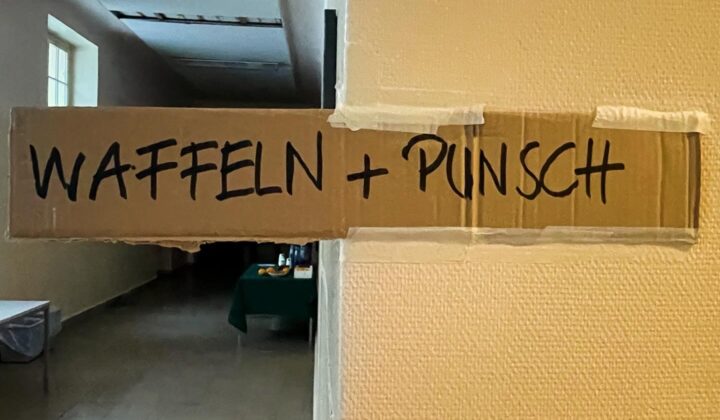 WAFFELN + PUNSCH